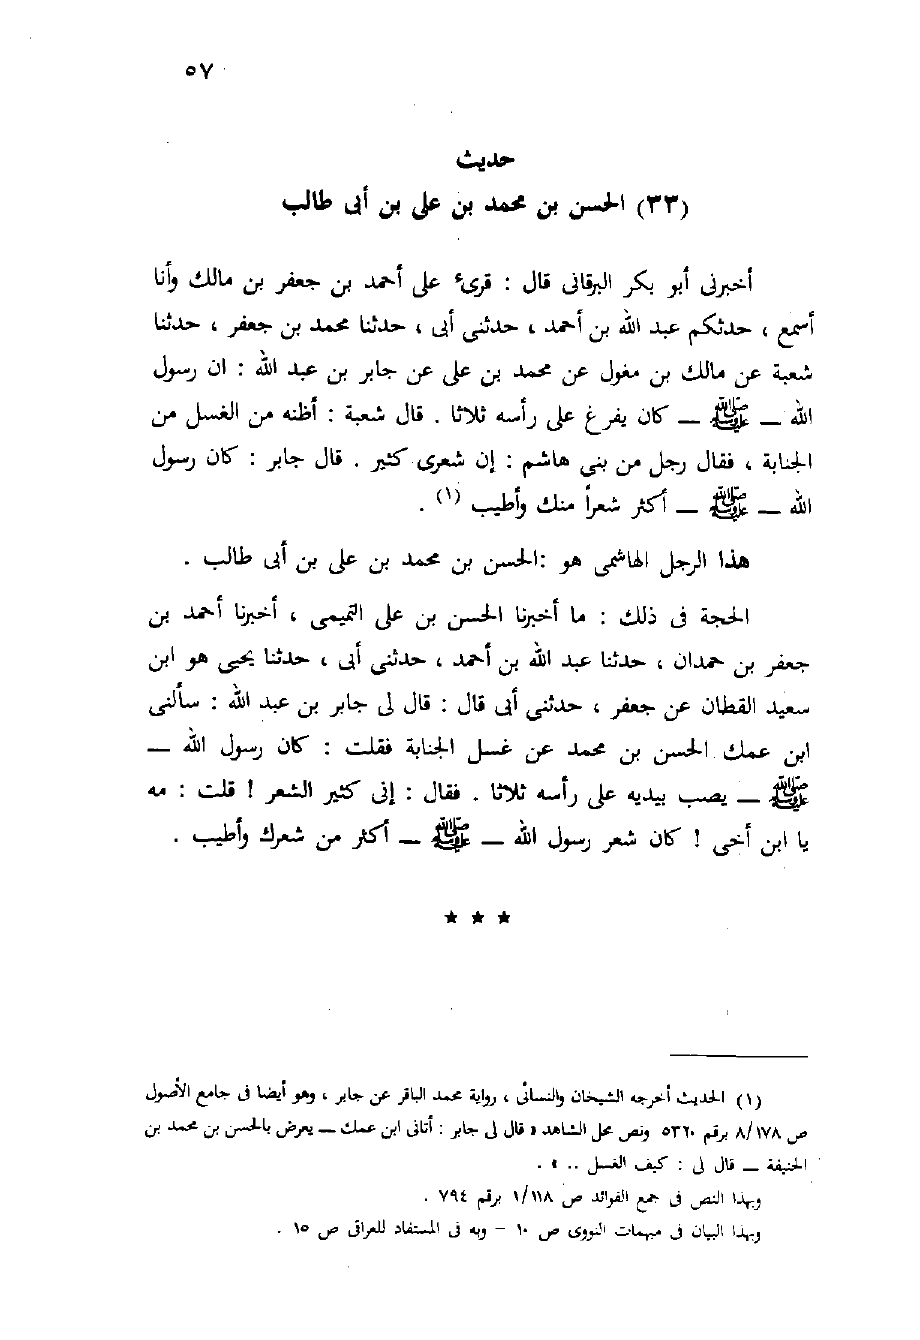 ٥٧
حديث
(٣٣) الحسن بن محمد بن على بن أبى طالب
أخبرنى أبو بكر البرقانى قال : قرئ على أحمد بن جعفر بن مالك وأنا
أسمع ، حدثكم عبد الله بن أحمد ، حدثنى أبى ، حدثنا محمد بن جعفر ، حدثنا
شعبة عن مالك بن مغول عن محمد بن على عن جابر بن عبد الله : ان رسول
الله ــ ﷺ ــ كان يفرغ على رأسه ثلاثا . قال شعبة : أظنه من الغسل من
الجنابة ، فقال رجل من بنى هاشم : إن شعرى كثير . قال جابر : كان رسول
الله ــ ﷺ ــ أكثر شعراً منك وأطيب (١) .
هذا الرجل الهاشمى هو :الحسن بن محمد بن على بن أبى طالب .
الحجة فى ذلك : ما أخبرنا الحسن بن على التميمى ، أخبرنا أحمد بن
جعفر بن حمدان ، حدثنا عبد الله بن أحمد ، حدثنى أبى ، حدثنا يحيى هو ابن
سعيد القطان عن جعفر ، حدثنى أبى قال : قال لى جابر بن عبد الله : سألنى
ابن عمك الحسن بن محمد عن غسل الجنابة فقلت : كان رسول الله ــ
ﷺ ــ يصب بيديه على رأسه ثلاثا . فقال : إنى كثير الشعر ! قلت : مه
يا ابن أخى ! كان شعر رسول الله ــ ﷺ ــ أكثر من شعرك وأطيب .
★ ★ ★
(١) الحديث أخرجه الشيخان والنسائى ، رواية محمد الباقر عن جابر ، وهو أيضا فى جامع الأصول
ص ٨/١٧٨ برقم ٥٣٢٠ ونص محل الشاهد « قال لى جابر : أتانى ابن عمك ــ يعرض بالحسن بن محمد بن
الحنيفة ــ قال لى : كيف الغسل .. » .
وبهذا النص فى جمع الفوائد ص ١/١١٨ برقم ٧٩٤ .
وبهذا البيان فى مبهمات النووى ص ١٠ – وبه فى المستفاد للعراقى ص ١٥ .